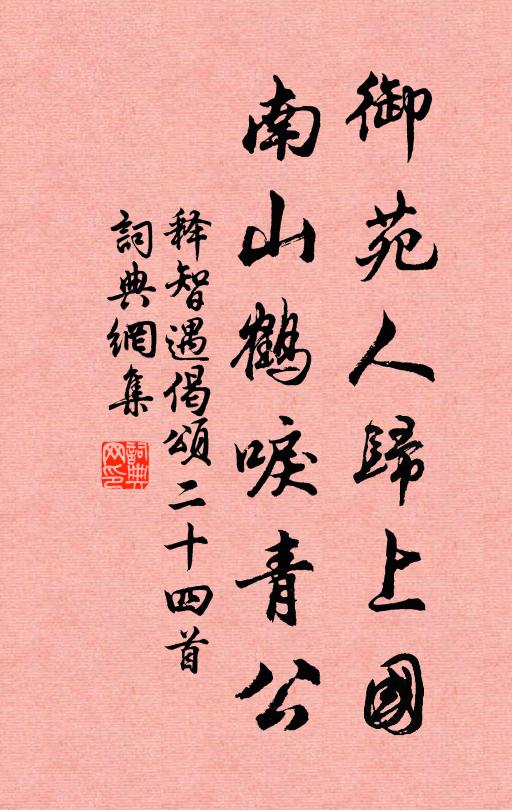 御苑人歸上國
南山鶴唳青公
释智遇偈頌二十四首
詞典網集
詞典網印